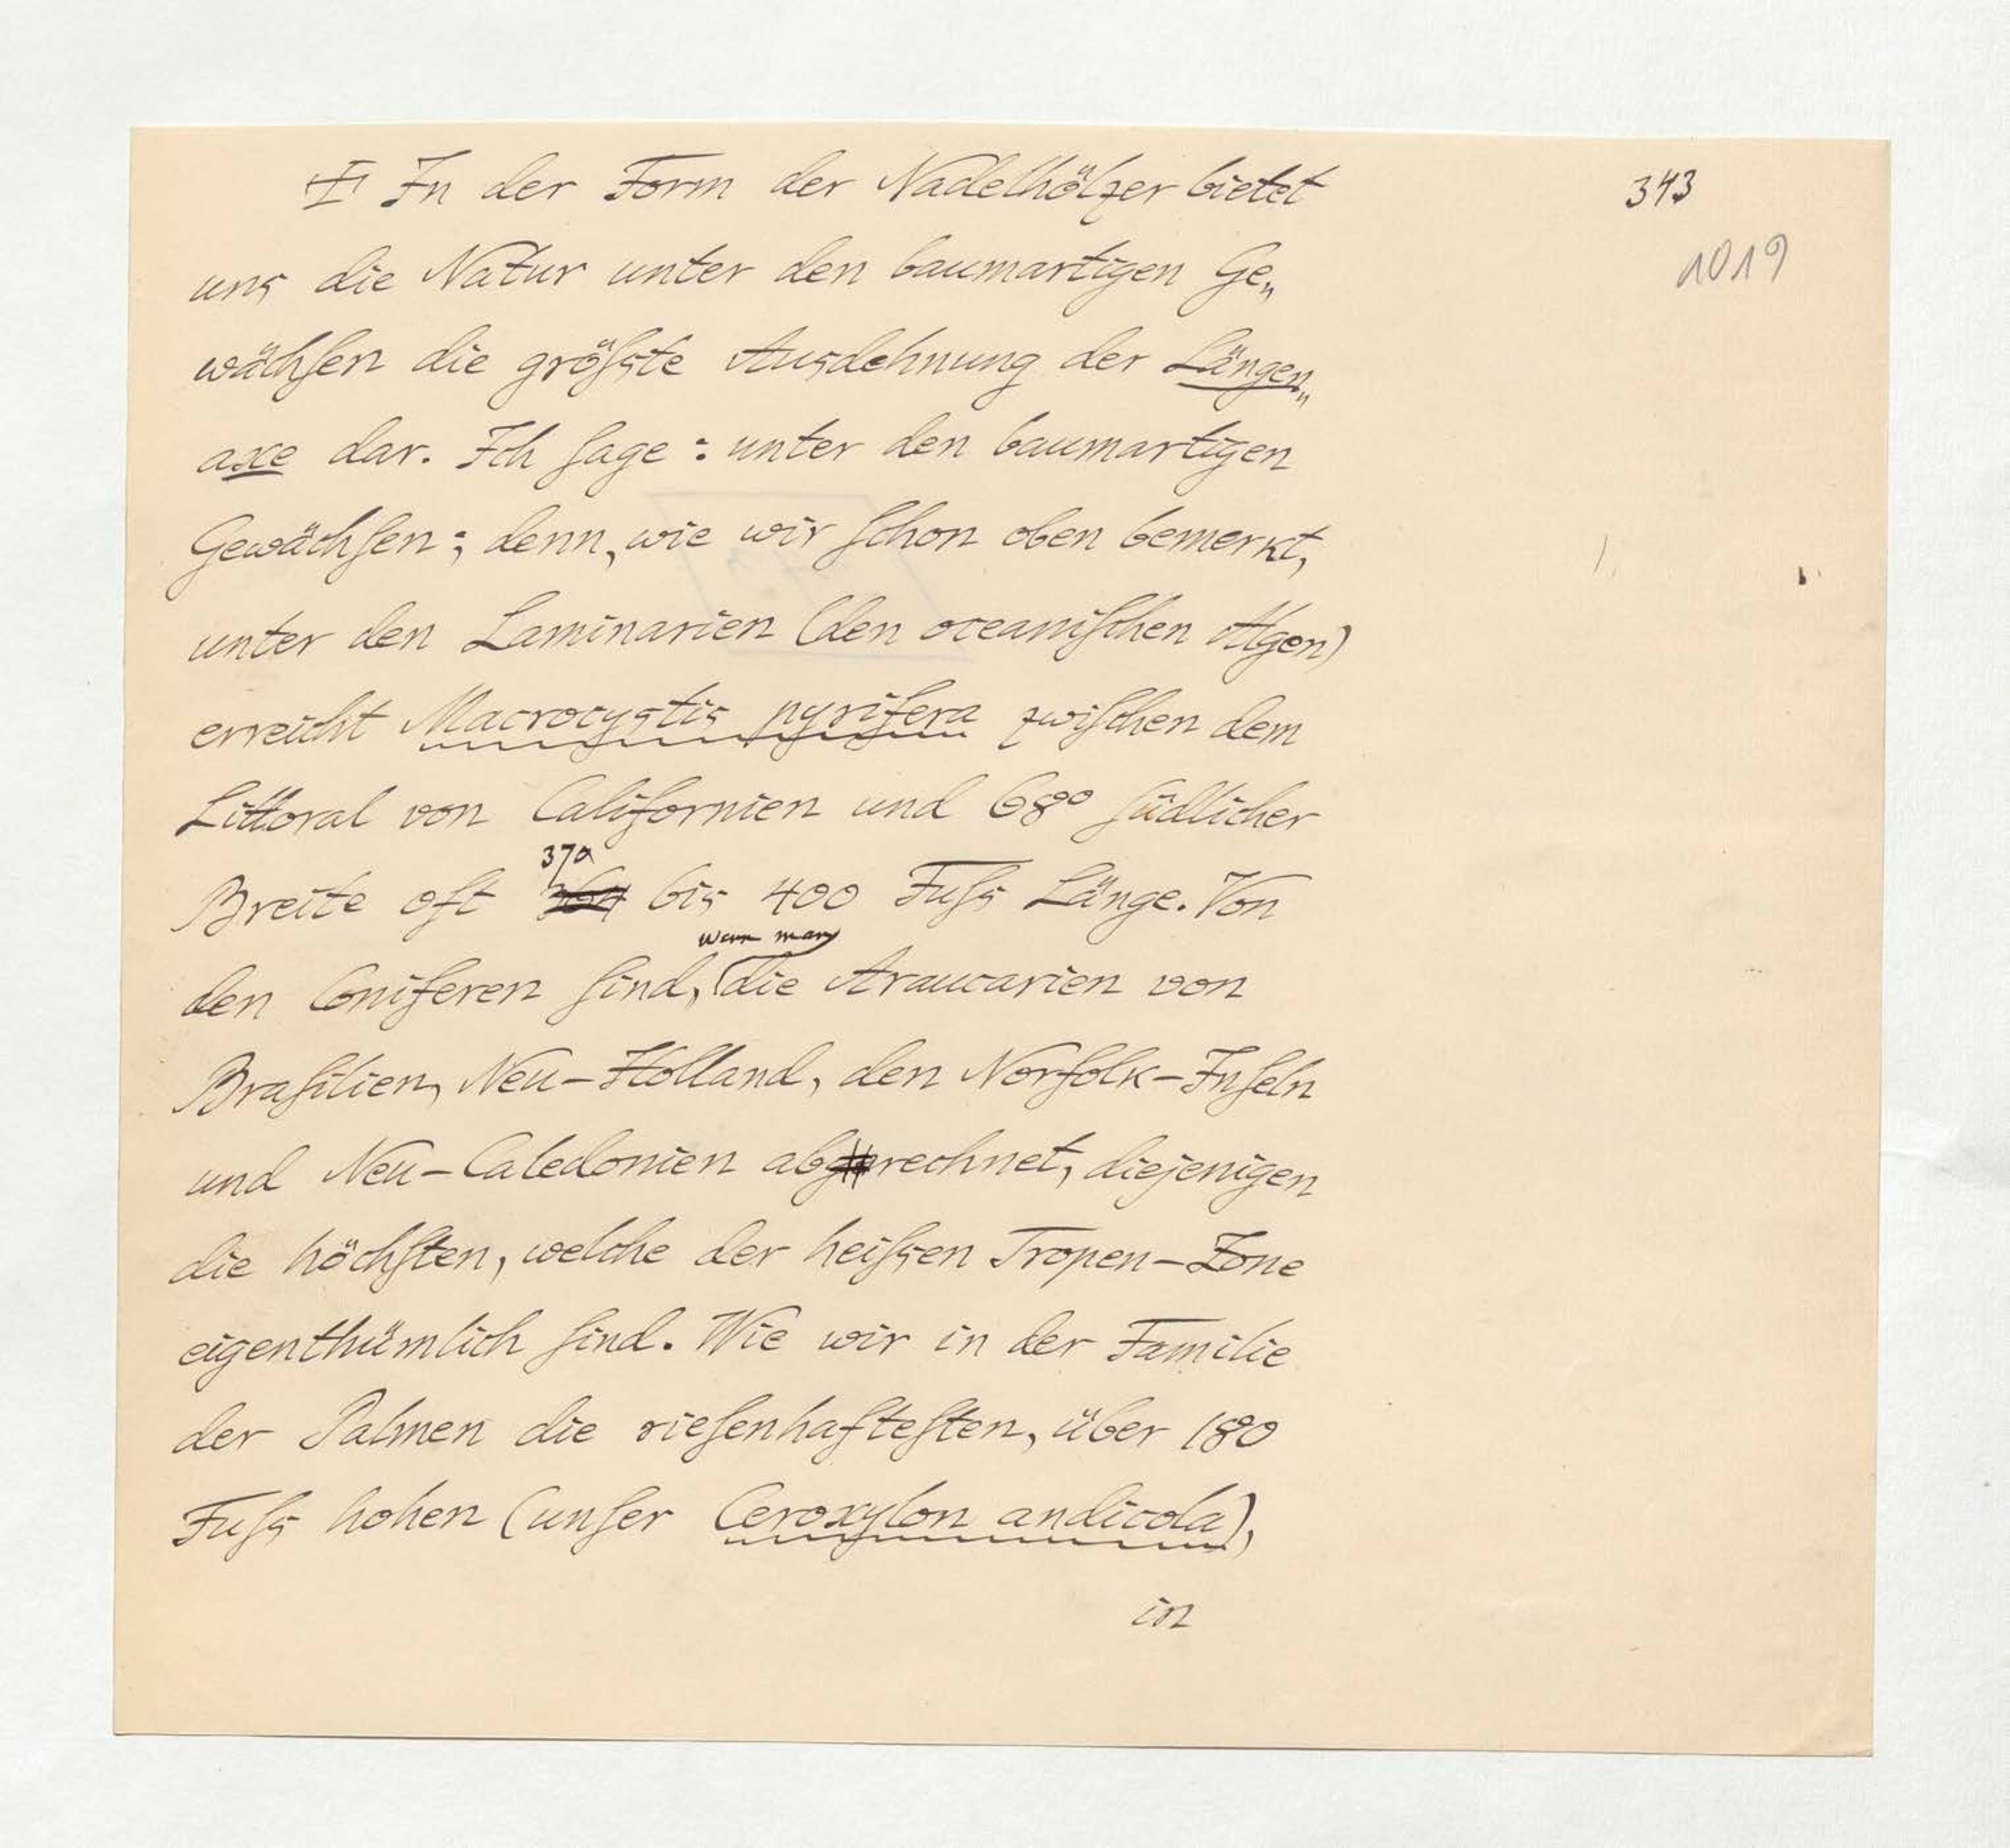 In der Form der Nadelhölzer bietet
343
1019
uns die Natur unter den baumartigen Ge„
wächſen die gröſste Ausdehnung der Längen„
axe dar. Ich ſage: unter den baumartigen
Gewächſen; denn, wie wir ſchon oben bemerkt,
unter den Laminarien (den oceaniſchen Algen)
erreicht Macrocystis pyrifera zwiſchen dem
Littoral von Californien und 68° ſüdlicher
370
Breite oft bis 400 Fuſs Länge. Von
wenn man
den Coniferen ſind, die Araucarien von
Braſilien, Neu-Holland, den Norfolk-Inſeln
und Neu-Caledonien abrechnet, diejenigen
die höchſten, welche der heiſsen Tropen-Zone
eigenthümlich ſind. Wie wir in der Familie
der Palmen die rieſenhafteſten, über 180
Fuſs hohen (unſer Ceroxylon andicola),
in